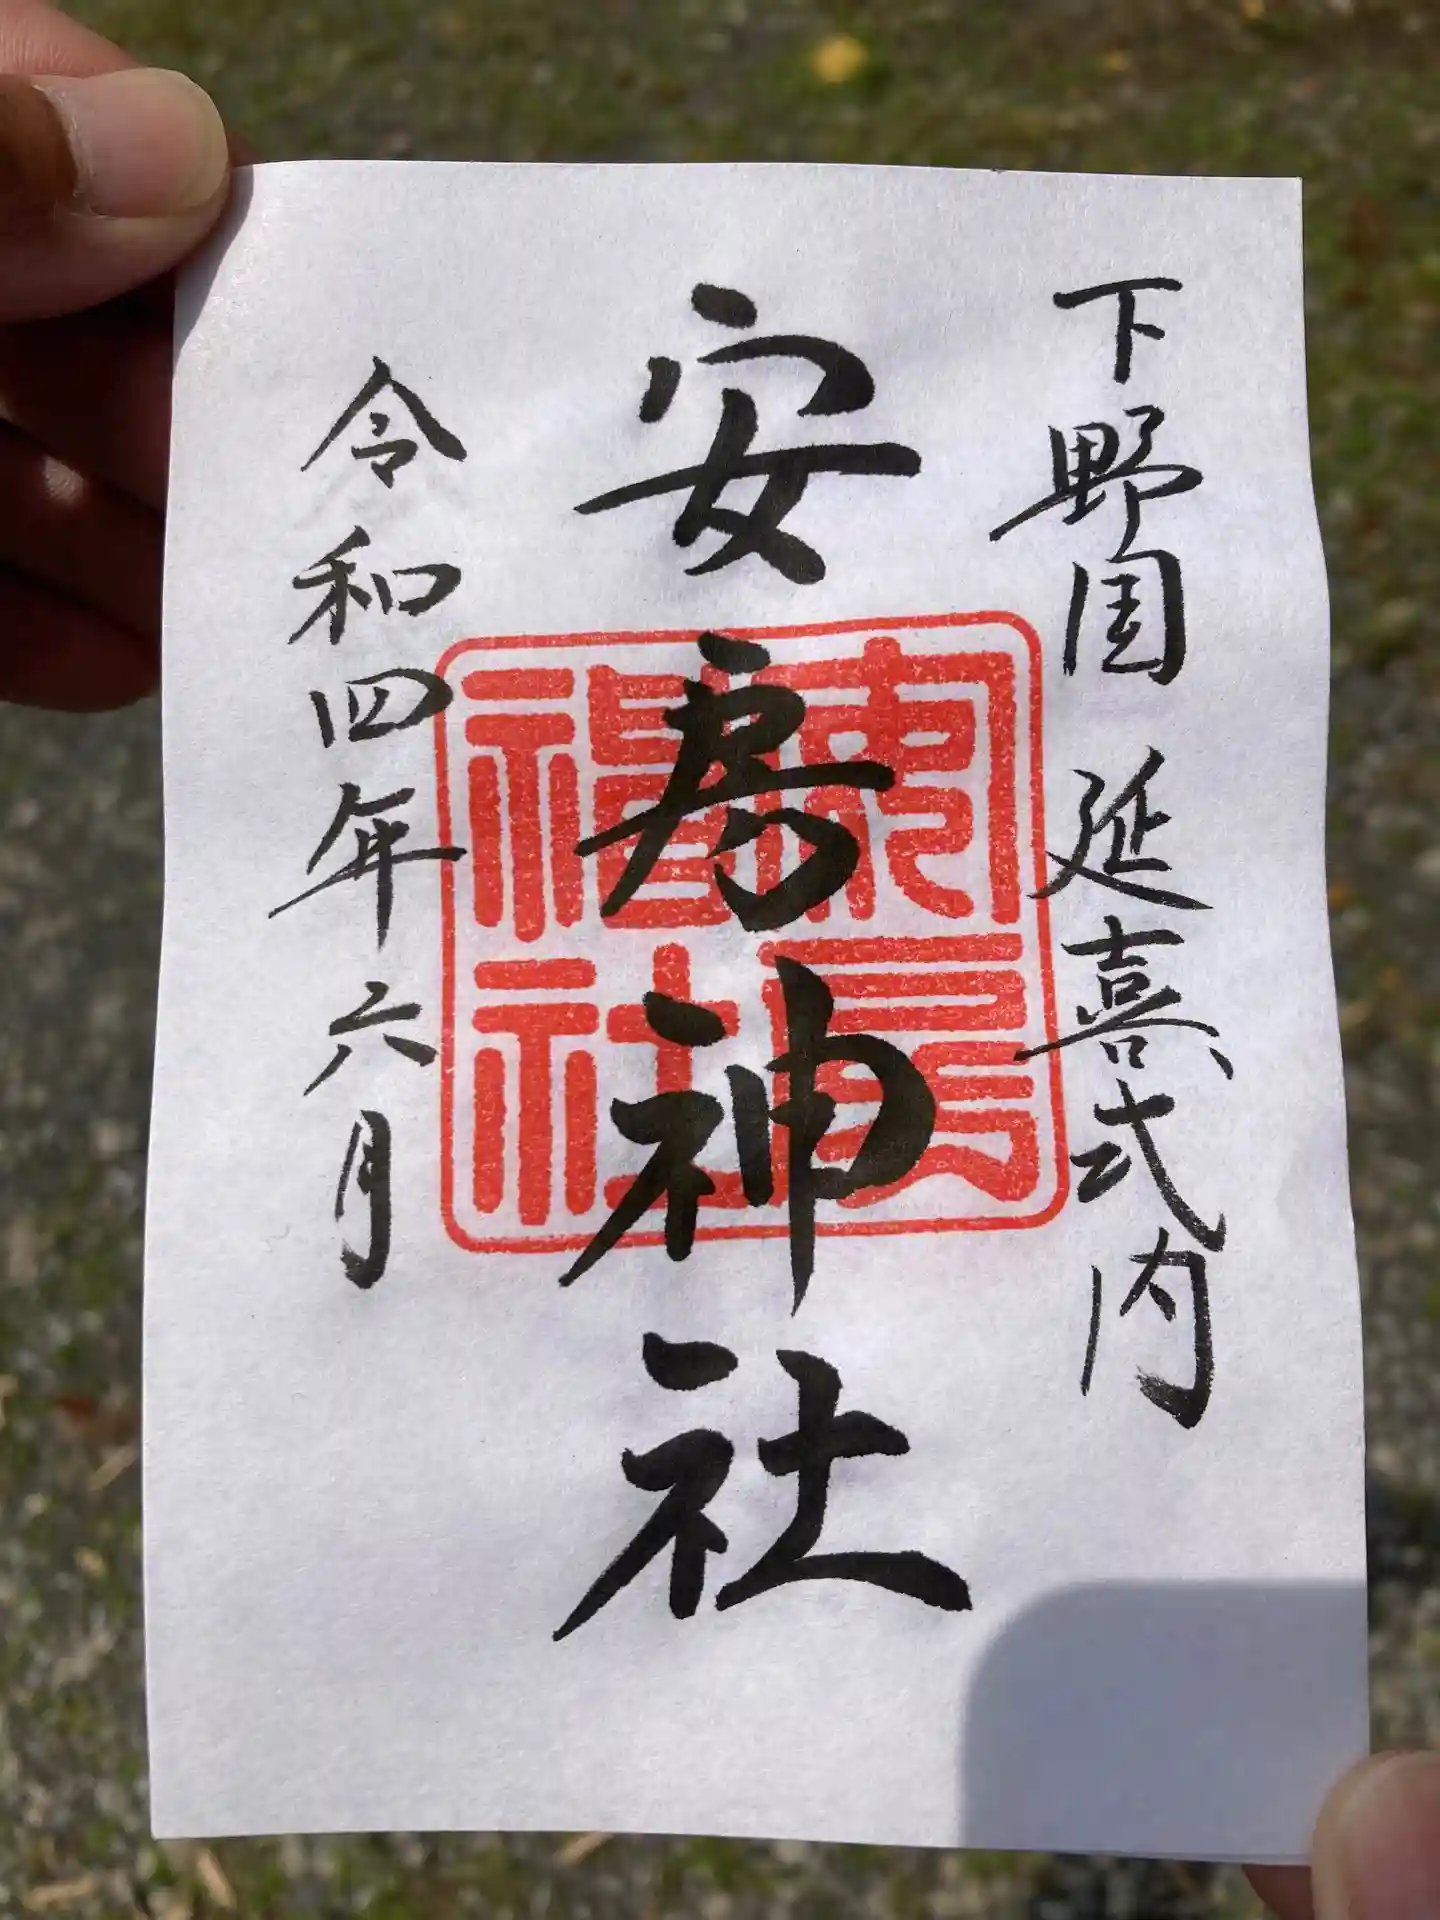 下野国 延喜式内
安房神社
安房神社
令和四年六月